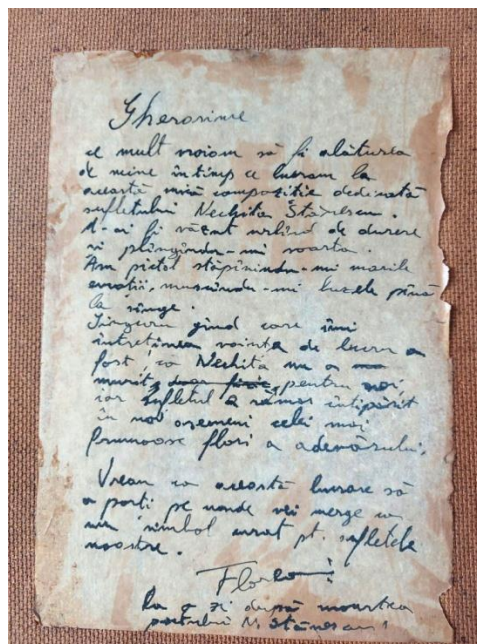 Gherasime
ce mult voiam să fi alăturea
de mine în timp ce lucram la
această mică compoziție dedicată
sufletului Nechita Stănescu.
M-ai fi văzut urlînd de durere
și plîngîndu-mi soarta.
Am pictat stăpînindu-mi marile
emoții, mușcîndu-mi buzele pînă
la sînge.
Singuru gînd care îmi
întreținea voința de lucru a
fost, că Nechita nu a
murit, doar fizic, pentru noi
iar sufletul a rămas întipărit
în noi asemeni celei mai
frumoase flori a adevărului.
Vreau ca această lucrare să
o porți pe unde vei merge ca
un simbol curat pt. sufletele
noastre.
La zi după moartea
poetului N. Stănescu!